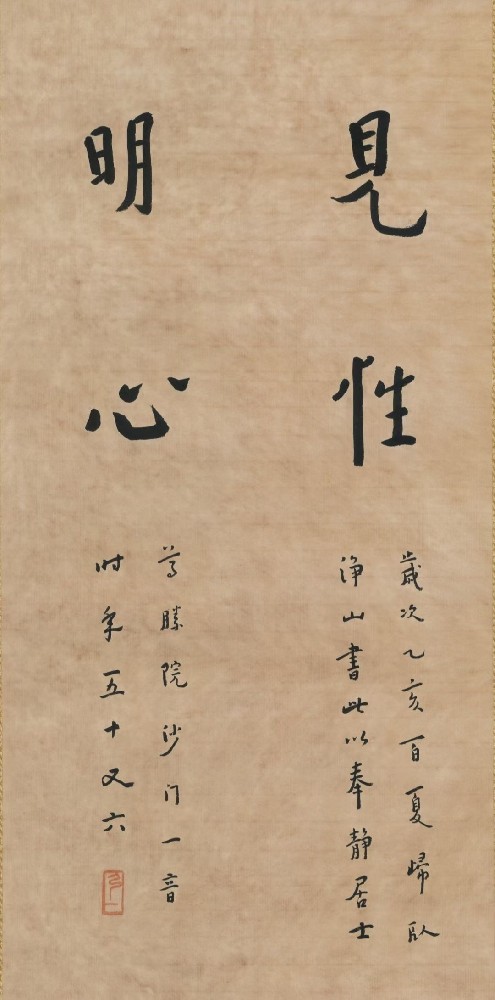 見性
明心
歲次乙亥首夏歸臥
淨山書此以奉靜居士
尊勝院沙门一音
时年五十又六